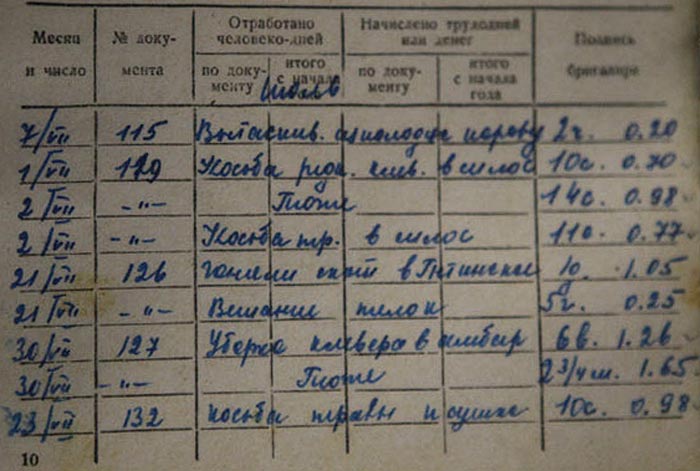 Месяц и число № доку-мента Отработано человеко-дней Начислено трудодней или денег Подпись бригадира
по доку-менту итого с начала по доку-менту итого с начала года
Июль
7/VII 115 Вытаскив. из колодца корову 2г. 0.20
1/VII 119 Косьба рядк. клев. в силос 10с. 0.70
2/VII –"– Тоже 14с. 0.98
2/VII –"– Косьба тр. в силос 11с. 0.77
21/VII 126 гоняли скот в 1д. 1.05
21/VII –"– Вешание пелок 5г. 0.25
30/VII 127 Уборка клевера в амбар 6в. 1.26
30/VII –"– Тоже 2 3/4 т. 1.65
23/VII 132 косьба травы и сушка 10с. 0.98
10